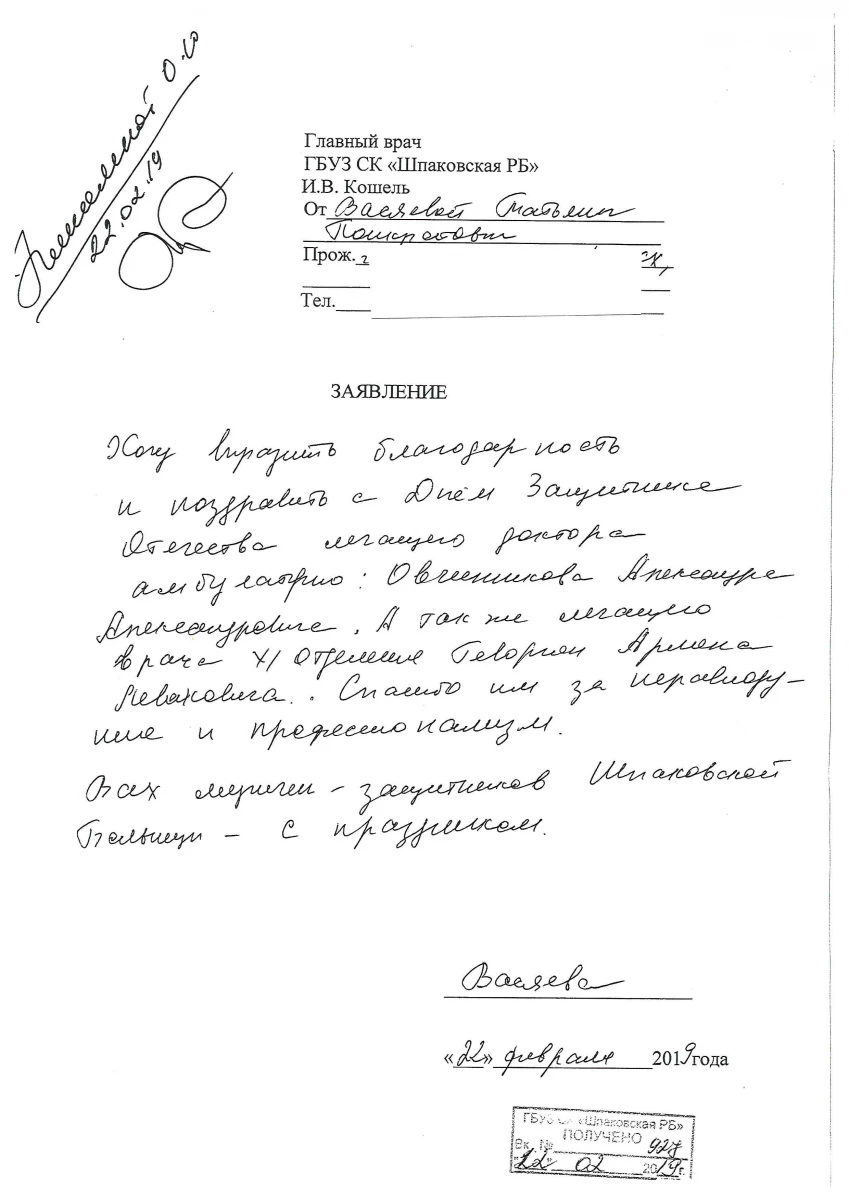 22.02.19
Главный врач
ГБУЗ СК «Шпаковская РБ»
И.В. Кошель
От Васяевой Татьяны
Прож.
Тел.
ЗАЯВЛЕНИЕ
Хочу выразить благодарность
и поздравить с Днём Защитника
Отечества лечащего доктора
амбулатрио: Овчинникова Александра
Александровича. А так же лечащего
врача XI отделения Геворгян Армена
Левановича. Спасибо им за неравноду-
шие и профессионализм.
Всех мужчин - защитников Шпаковской
Больницы - с праздником.
Васяева
«22» февраля 2019 года
ГБУЗ СК «Шпаковская РБ»
ПОЛУЧЕНО
Вх. № 928
"22" 02 2019 г.